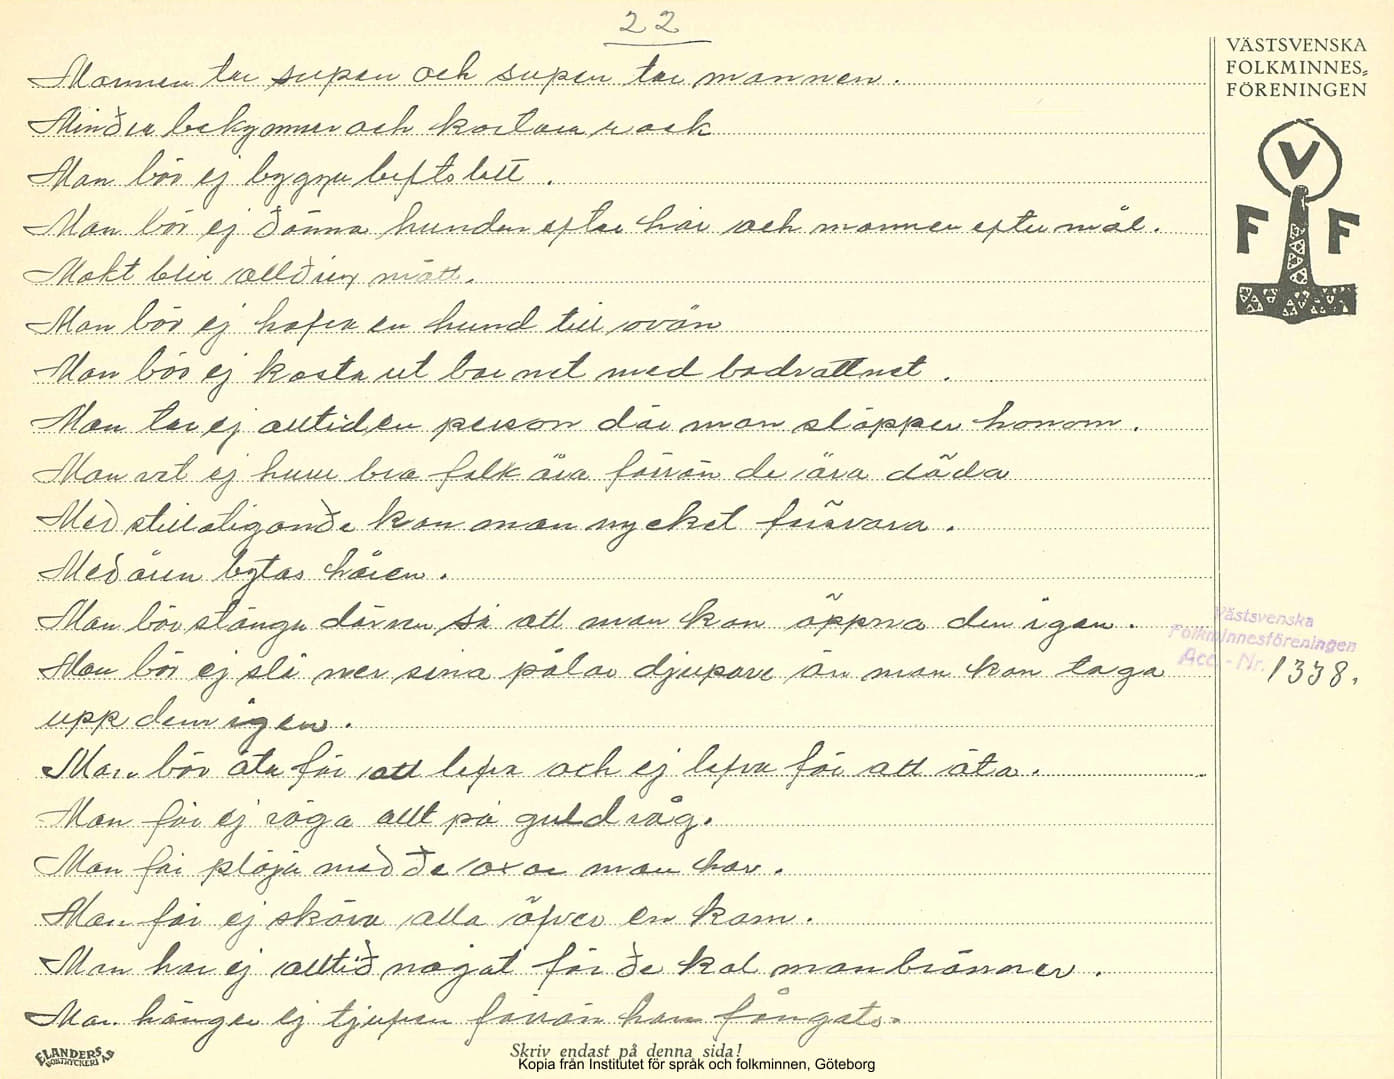 22
Mannen tar supen och supen tar mannen.
Mindra bekymmer och kortare rock
Man bör ej bygga luftslott.
Man bör ej dömma hunden efter hår och mannen efter mål.
Makt blir alldrig mätt.
Man bör ej hafva en hund till ovän
Man bör ej kasta ut barnet med badvattnet.
Man tar ej alltid en person där man släpper honom.
Man vet ej huru bra folk äro förrän de äro döda
Med stillatigande kan man mycket försvara.
Med åren bytas håren.
Man bör stänga dörren så att man kan öppna den igen.
Man bör ej slå ner sina pålar djupare än man kan taga
upp dem igen.
Man bör äta för att lefva och ej lefva för att äta.
Man får ej väga allt på guldvåg.
Man får plöja med de oxar man har.
Man får ej skära alla öfver en kam.
Man har ej alltid något för de kol man bränner.
Man hänger ej tjufven förrän han fångats.
VÄSTSVENSKA
FOLKMINNES-
FÖRENINGEN
V
F F
Västsvenska
Folkminnesföreningen
Acc.-Nr. 1338.
ELANDERS
BOKTRYCKERI AB
Skriv endast på denna sida!
Kopia från Institutet för språk och folkminnen, Göteborg